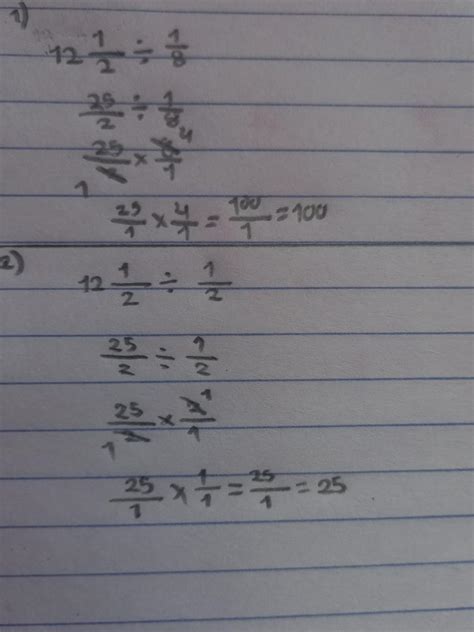 1)
12 1/2 ÷ 1/8
25/2 ÷ 1/8
25/2 × 8/1 4
1
25/1 × 4/1 = 100/1 = 100
2)
12 1/2 ÷ 1/2
25/2 ÷ 1/2
25/2 × 2/1 1
1
25/1 × 1/1 = 25/1 = 25